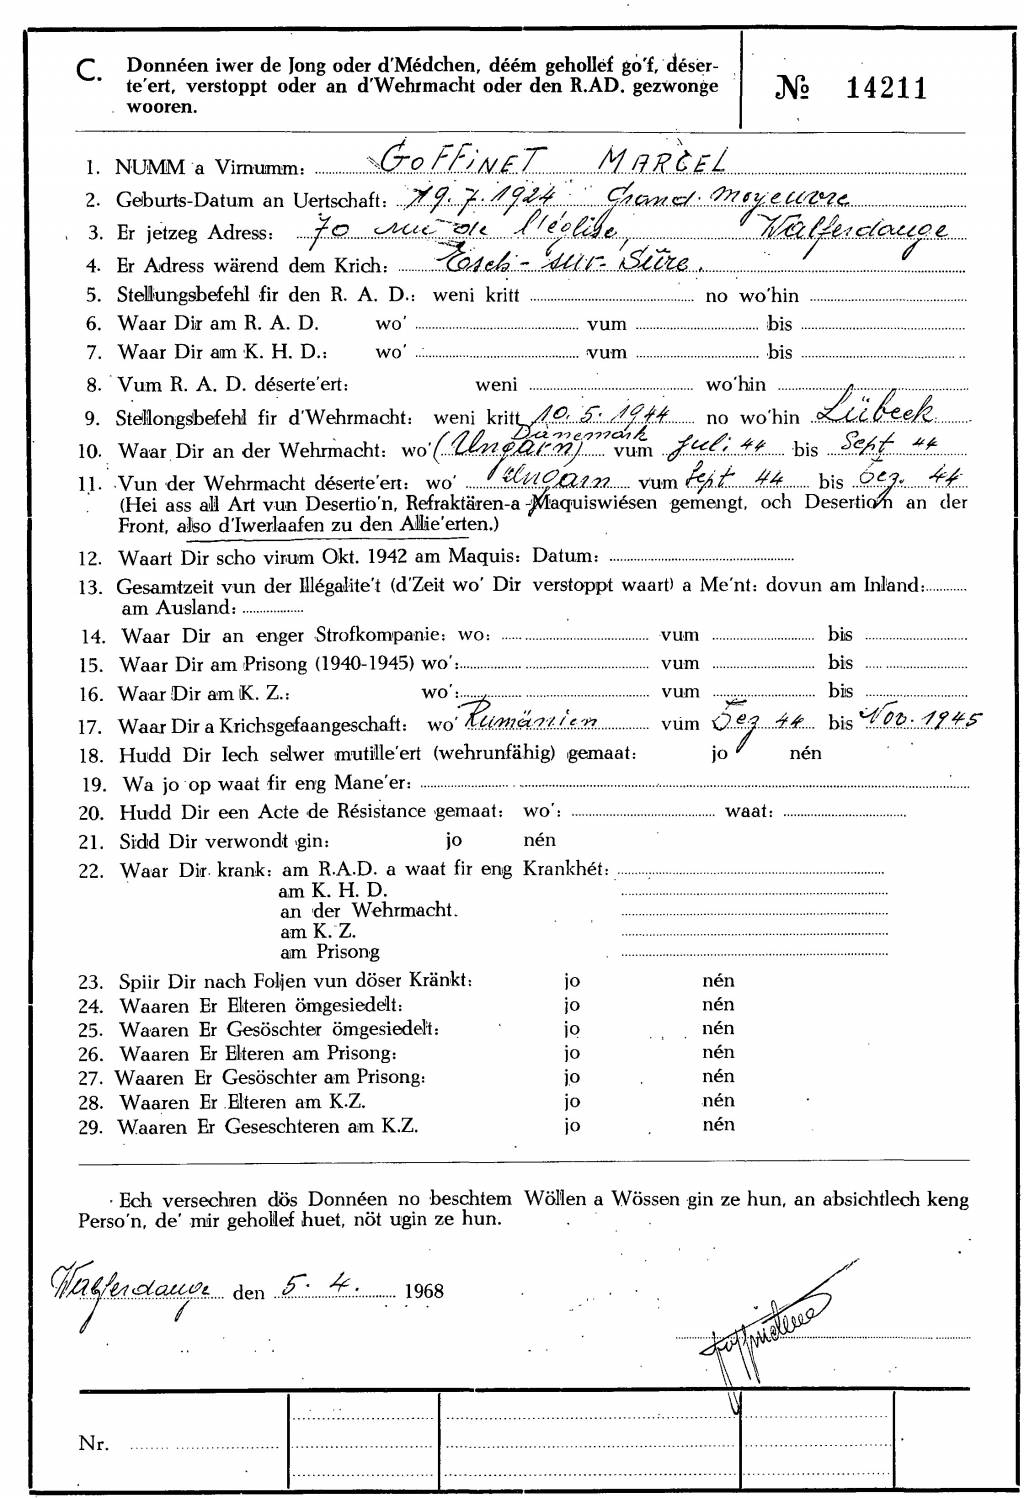 C. Donnéen iwer de Jong oder d'Médchen, déém gehollef go'f, déser-
te'ert, verstoppt oder an d'Wehrmacht oder den R.AD. gezwonge
wooren.
№ 14211
1. NUMM a Virnumm: GOFFINET MARCEL
2. Geburts-Datum an Uertschaft: 19.7.1924 Grand-Moyeuvre
3. Er jetzeg Adress: 70 rue de l'église, Walferdange
4. Er Adress wärend dem Krich: Esch-sur-Sûre.
5. Stellungsbefehl fir den R. A. D.: weni kritt no wo'hin
6. Waar Dir am R. A. D. wo' vum bis
7. Waar Dir am K. H. D.: wo' vum bis
8. Vum R. A. D. déserte'ert: weni wo'hin
9. Stellongsbefehl fir d'Wehrmacht: weni kritt 10.5.1944 no wo'hin Lübeck
Dänemark
10. Waar Dir an der Wehrmacht: wo' (Ungarn) vum Juli 44 bis Sept 44
11. Vun der Wehrmacht déserte'ert: wo' Ungarn vum Sept 44 bis Dez. 44
(Hei ass all Art vun Desertio'n, Refraktären-a -Maquiswiésen gemengt, och Desertio'n an der
Front, also d'Iwerlaafen zu den Allie'erten.)
12. Waart Dir scho virum Okt. 1942 am Maquis: Datum:
13. Gesamtzeit vun der Illégalite't (d'Zeit wo' Dir verstoppt waart) a Me'nt: dovun am Inland:
am Ausland:
14. Waar Dir an enger Strofkompanie: wo: vum bis
15. Waar Dir am Prisong (1940-1945) wo': vum bis
16. Waar Dir am K. Z.: wo': vum bis
17. Waar Dir a Krichsgefaangeschaft: wo' Rumänien vum Dez 44 bis Nov. 1945
18. Hudd Dir Iech selwer mutille'ert (wehrunfähig) gemaat: jo nén
19. Wa jo op waat fir eng Mane'er:
20. Hudd Dir een Acte de Résistance gemaat: wo': waat:
21. Sidd Dir verwondt gin: jo nén
22. Waar Dir krank: am R.A.D. a waat fir eng Krankhét:
am K. H. D.
an der Wehrmacht.
am K. Z.
am Prisong
23. Spiir Dir nach Foljen vun döser Kränkt: jo nén
24. Waaren Er Elteren ömgesiedelt: jo nén
25. Waaren Er Gesöschter ömgesiedelt: jo nén
26. Waaren Er Elteren am Prisong: jo nén
27. Waaren Er Gesöschter am Prisong: jo nén
28. Waaren Er Elteren am K.Z. jo nén
29. Waaren Er Geseschteren am K.Z. jo nén
Ech versechren dös Donnéen no beschtem Wöllen a Wössen gin ze hun, an absichtlech keng
Perso'n, de' mir gehollef huet, nöt ugin ze hun.
Walferdange den 5. 4. 1968
Nr.